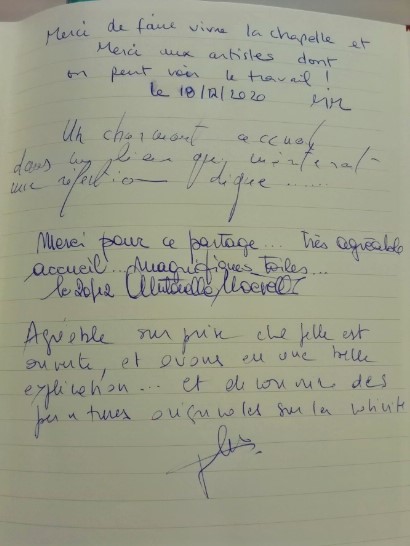 Merci de faire vivre la chapelle et
Merci aux artistes dont
on peut voir le travail !
le 18/12/2020
Un charmant accueil
dans un lieu qui
une réfection digne ......
Merci pour ce partage... très agréable
accueil... magnifiques toiles...
le 20/12
Agréable surprise chapelle est
ouverte, et avons eu une belle
explication... et découverte des
peintures originales sur la nativité